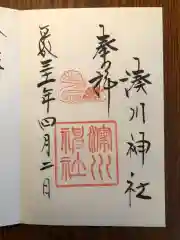 湊川神社
奉拝
湊川
神社
平成三十一年四月二日